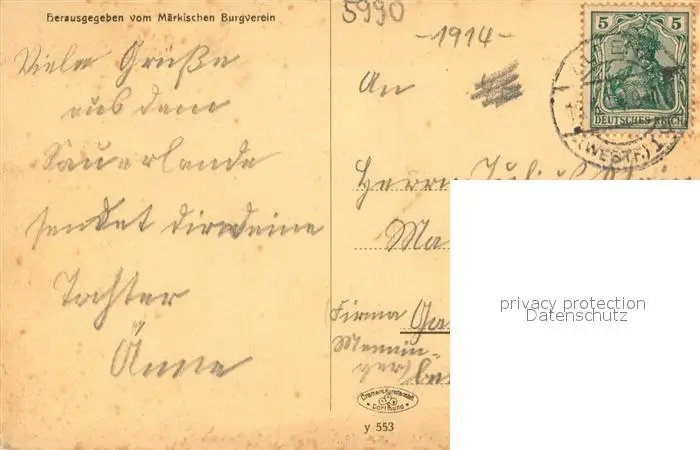 Herausgegeben vom Märkischen Burgverein
5990
-1914-
5 5
DEUTSCHES REICH
(WESTF.) 1
Viele Grüße
aus dem
Sauerlande
sendet dir deine
Tochter
Änne
An
Herrn Julius
Ma
Firma Ga
Mennin-
ger
be
Cramers Kunstanstalt
Dortmund
y 553
privacy protection
Datenschutz